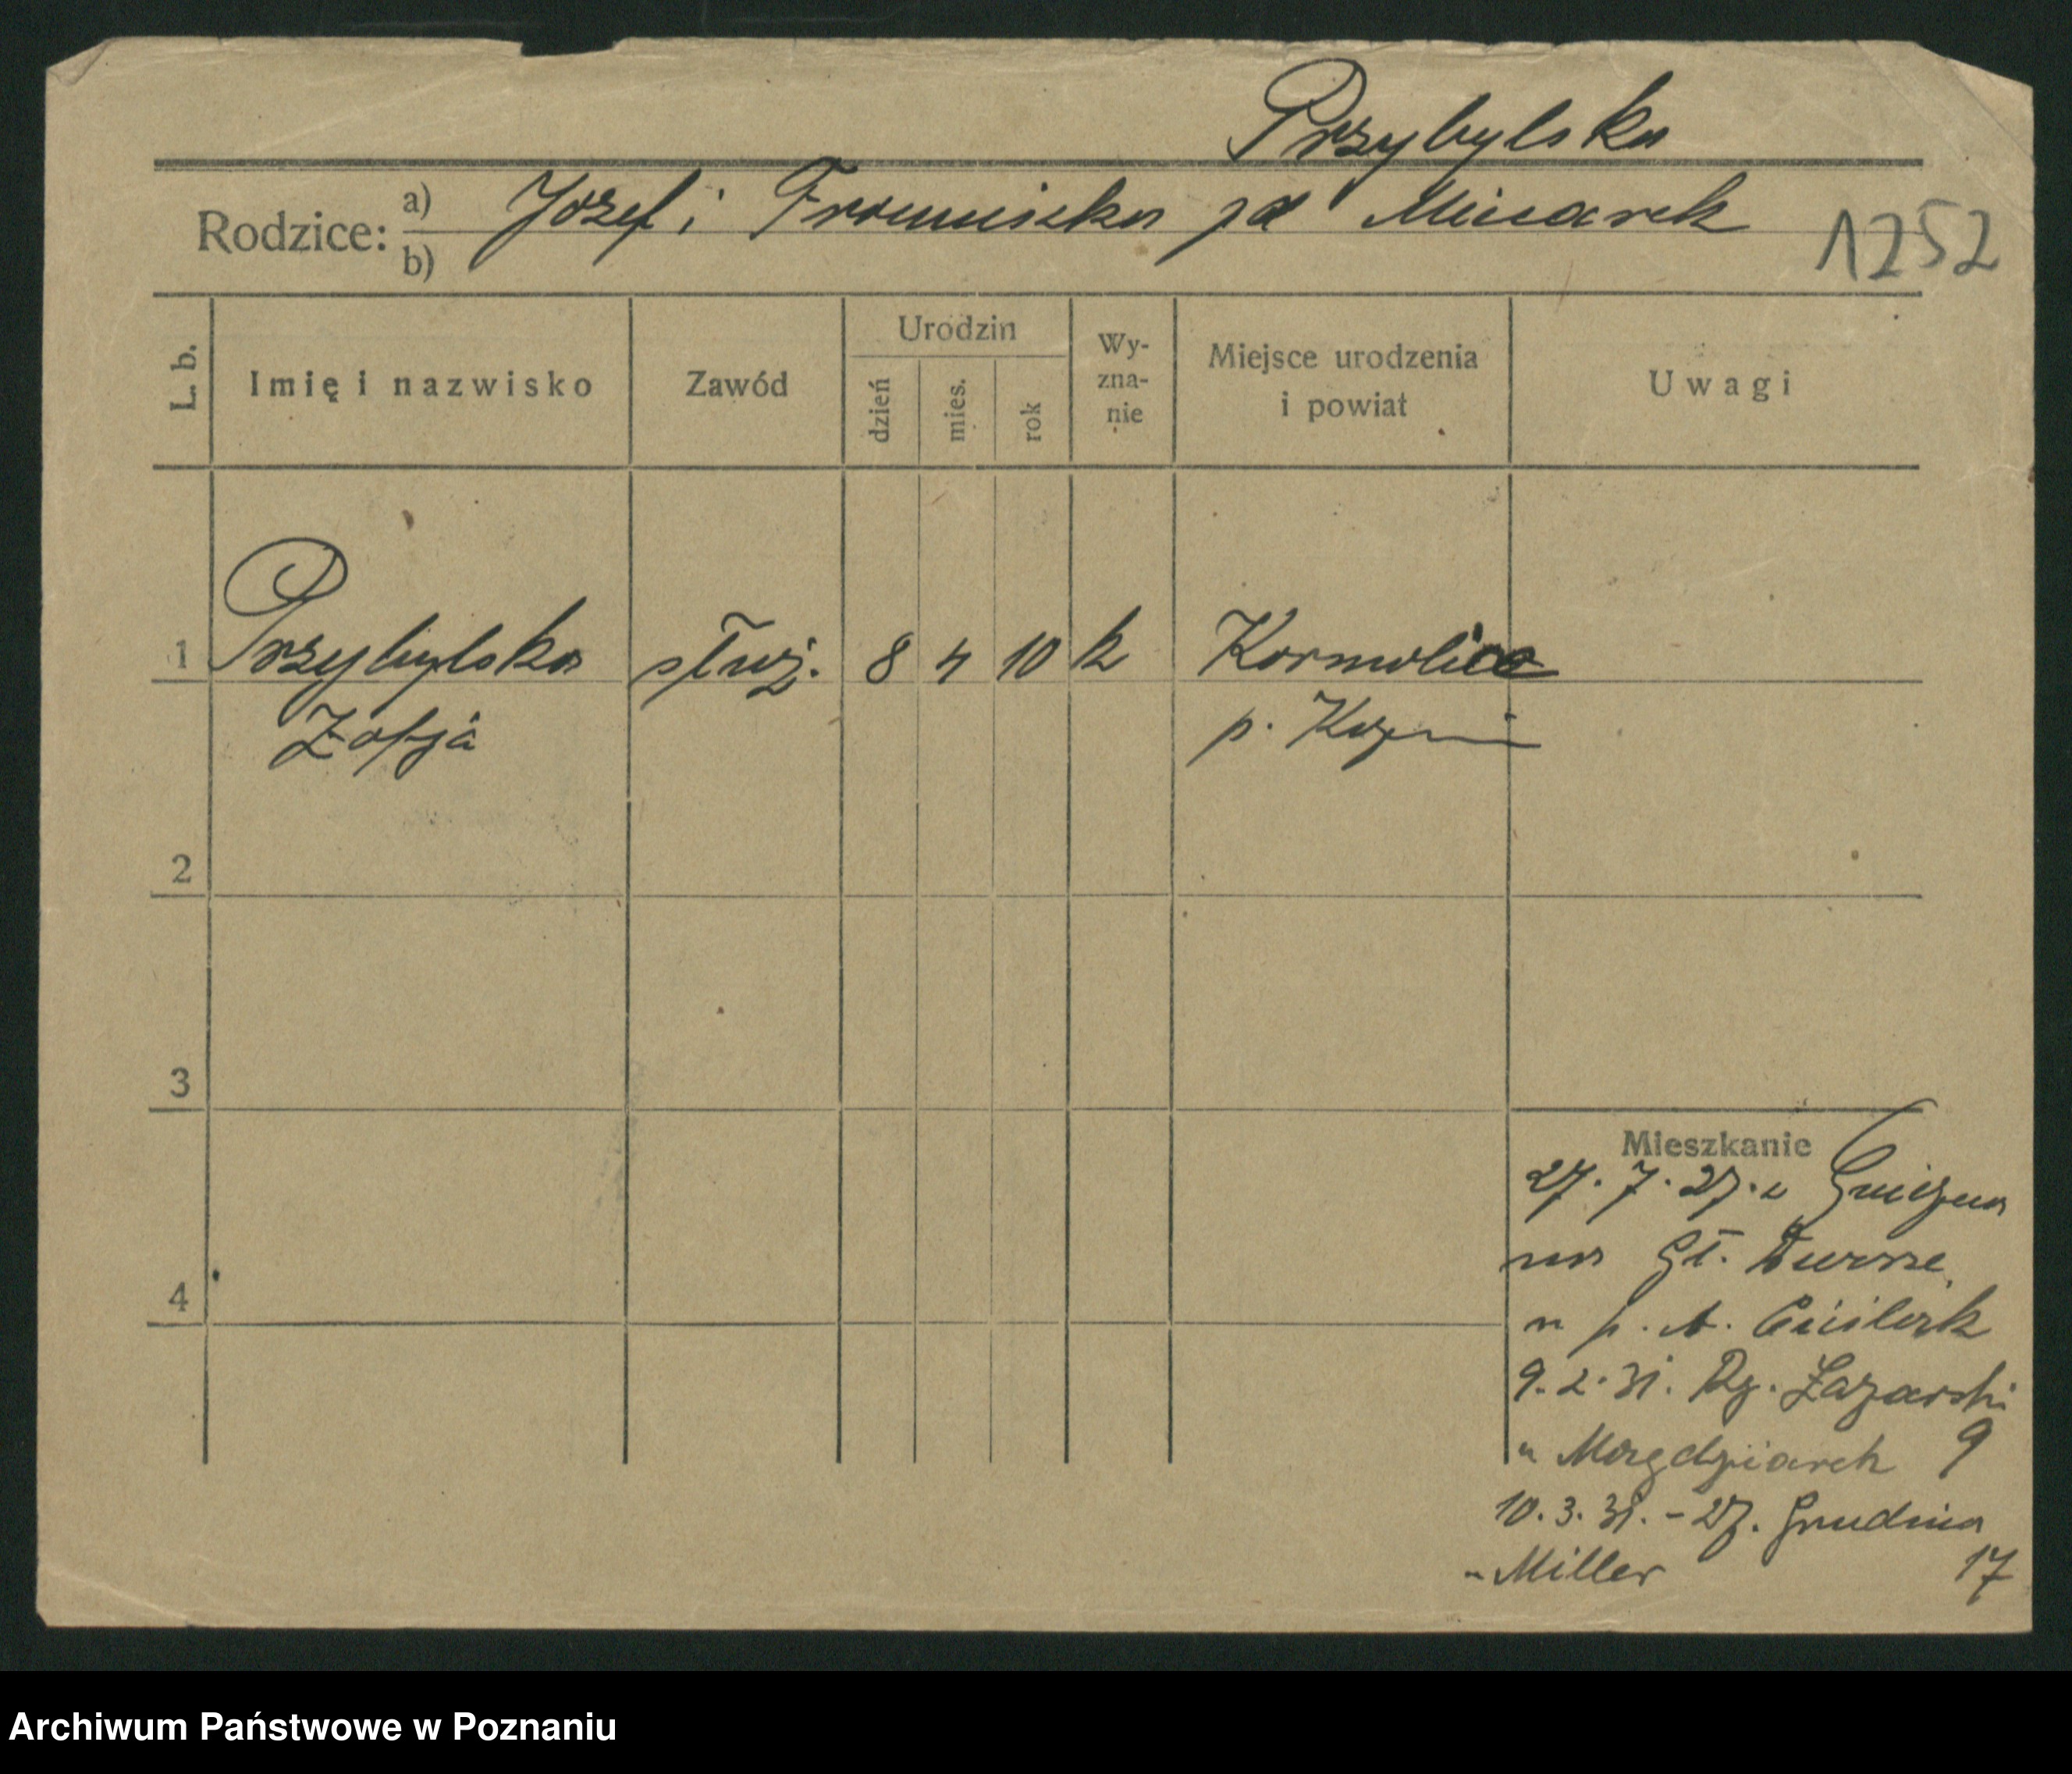 Przybylska
Rodzice: a) Józef i Franciszka zd Minarek
b)
1252
L. b.
Imię i nazwisko
Zawód
Urodzin
dzień
mies.
rok
Wy-
zna-
nie
Miejsce urodzenia
i powiat
Uwagi
1 Przybylska służ. 8 4 10 k
Zofja p.
2
3
4
Mieszkanie
27. 7. 27. z Gniezna
na Gł.
u p. A.
9. 2. 31. Łazarski
u Mazgdziarek 9
10. 3. 31. - 27. Grudnia
u Miller 17
Archiwum Państwowe w Poznaniu